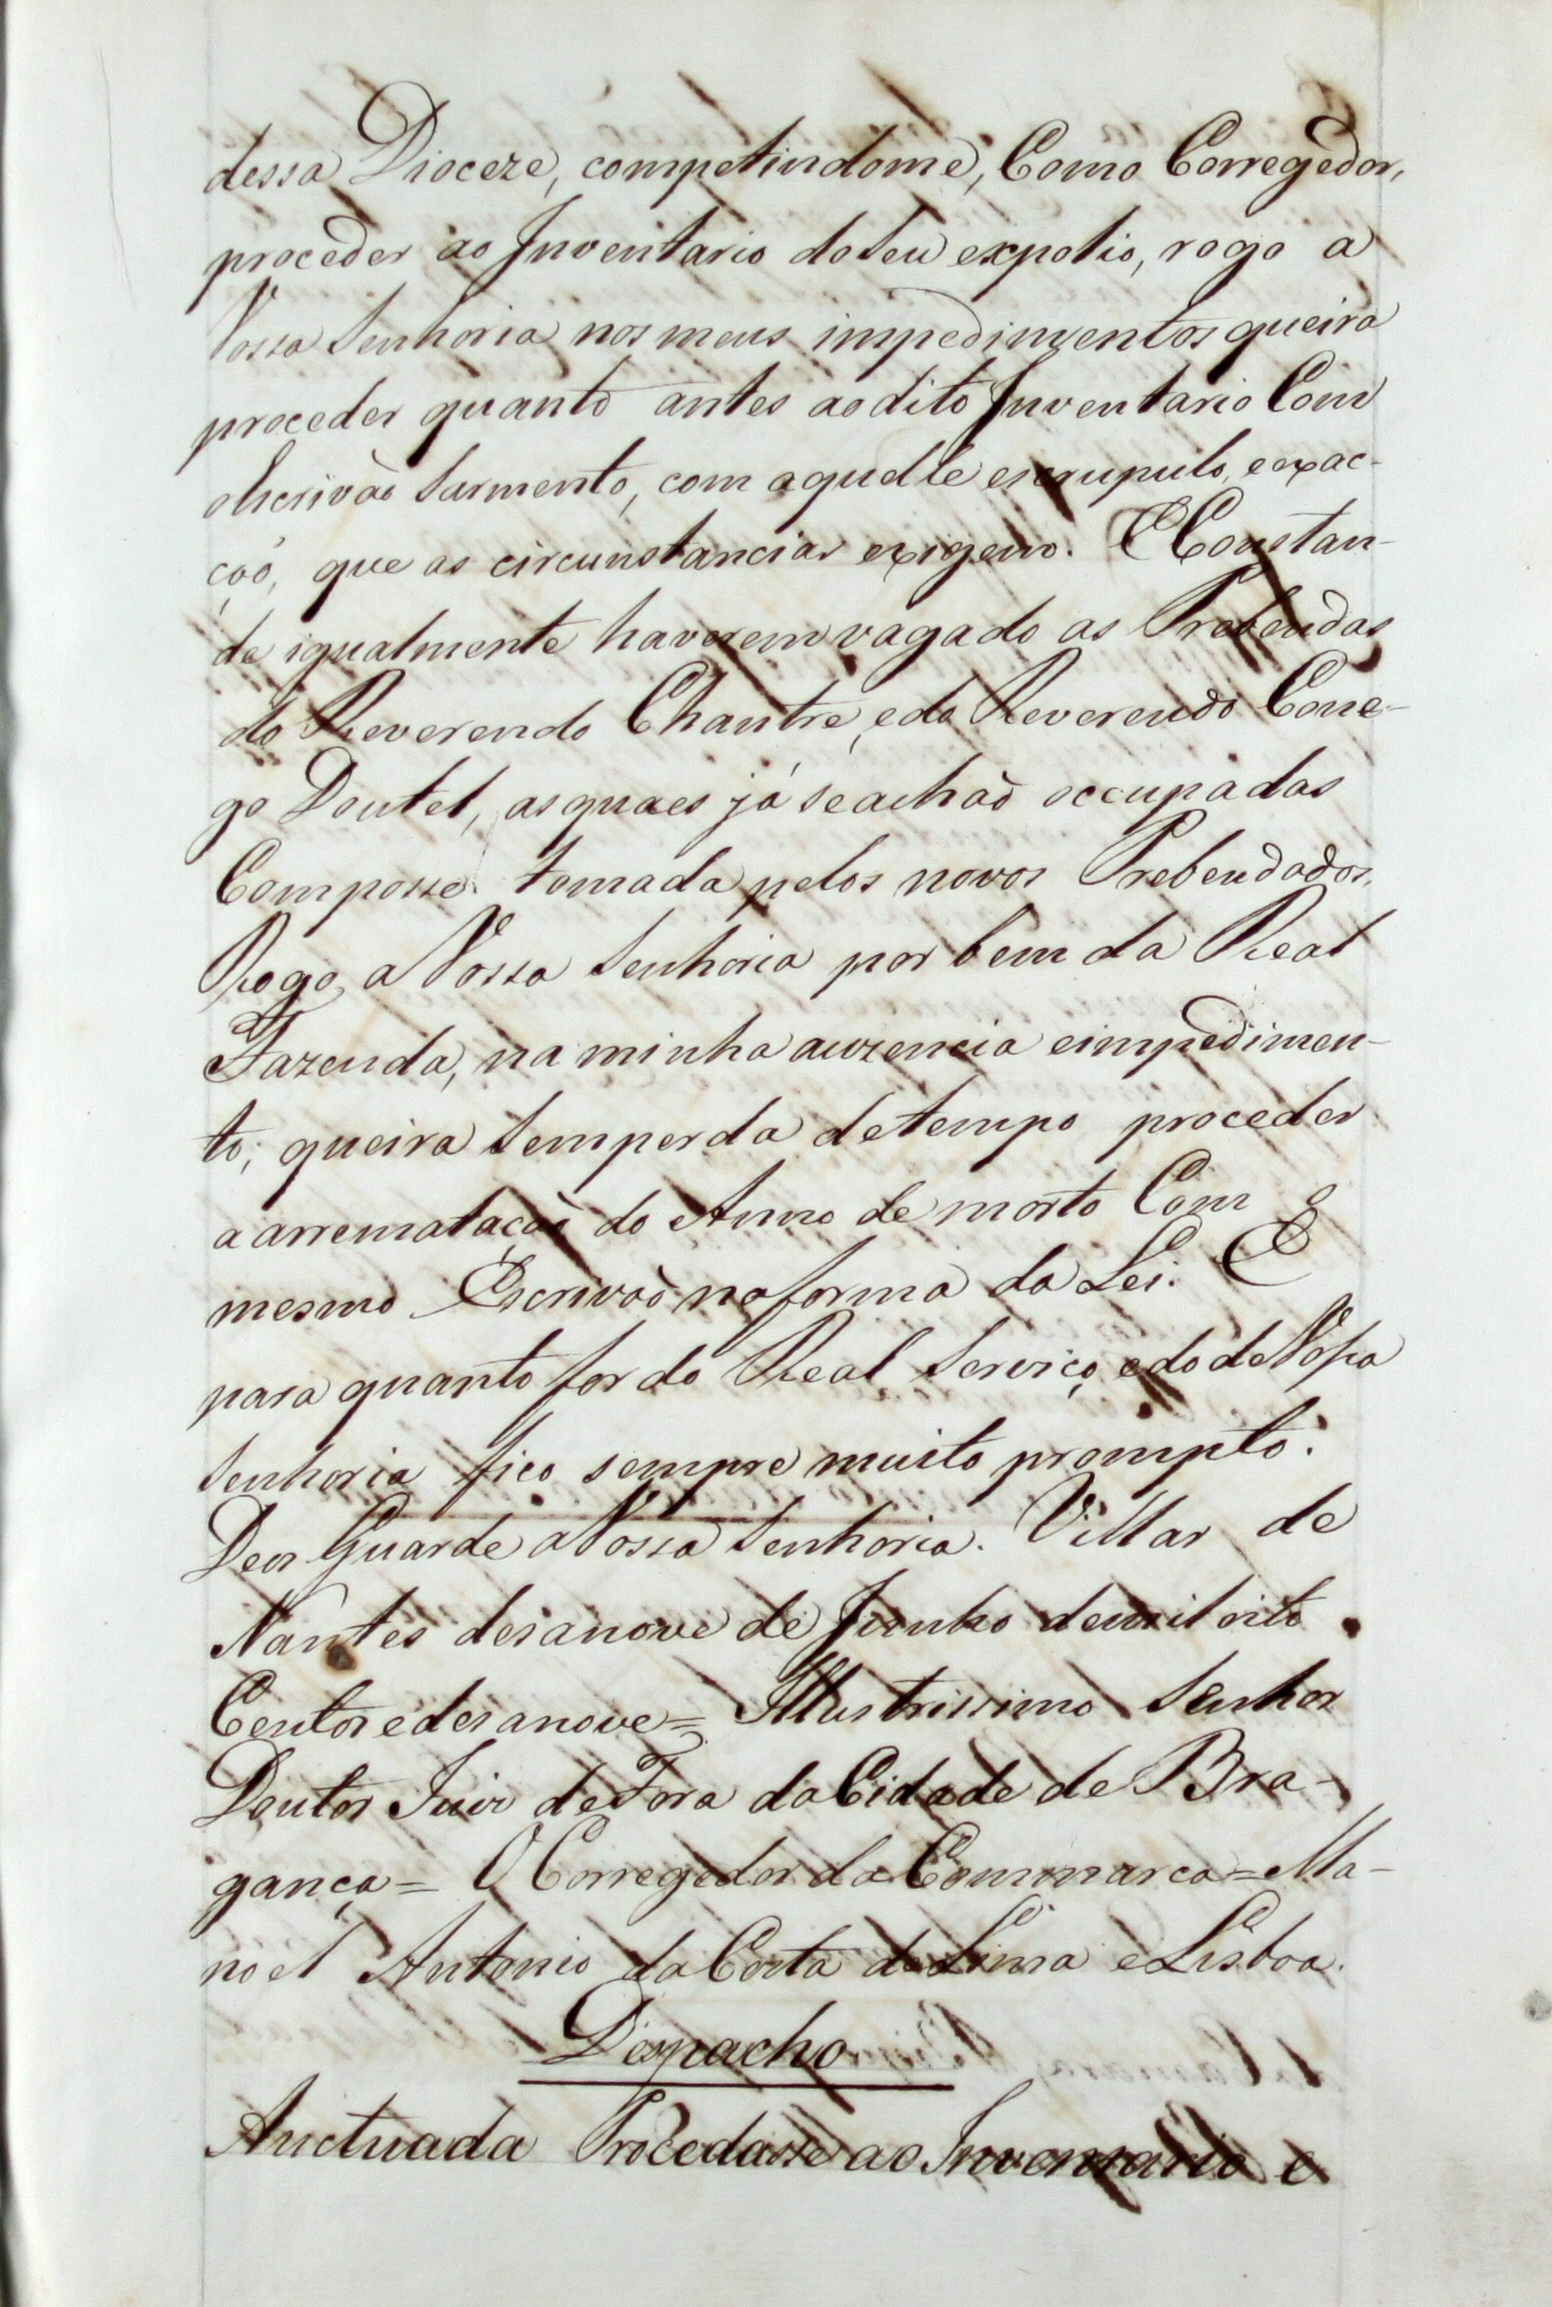 dessa Dioceze, competindome, Como Corregedor,
proceder ao Inventario do seu expolio, rogo a
Vossa Senhoria nos meus impedimentos queira
proceder quanto antes ao dito Inventario Com
oEscrivaõ Sarmento, com aquelle escrupulo, eexac-
çaõ, que as circunstancias exigem. EConstan-
do igualmente haverem vagado as Prebendas
do Reverendo Chantre, edo Reverendo Cone-
go Doutel, as quaes já seachaõ occupadas
Composse tomada pelos novos Prebendados.
Rogo a Vossa Senhoria por bem da Real
Fazenda, na minha auzencia eimpedimen-
to, queira Semperda detempo proceder
a arremataçaõ do Anno de morto Com o
mesmo Escrivaõ na forma da Lei. E
para quanto for do Real Serviço, edo de Vossa
Senhoria fico sempre muito prompto.
Deos Guarde aVossa Senhoria. Villar de
Nantes desanove de Junho demil oito
Centos edesanove = Illustrissimo Senhor
Doutor Juis de Fora da Cidade de Bra-
gança = O Corregedor da Commarca = Ma-
noel Antonio da Costa de Lima e Lisboa.
Despacho
Auctuada Procedasse ao Inventario e